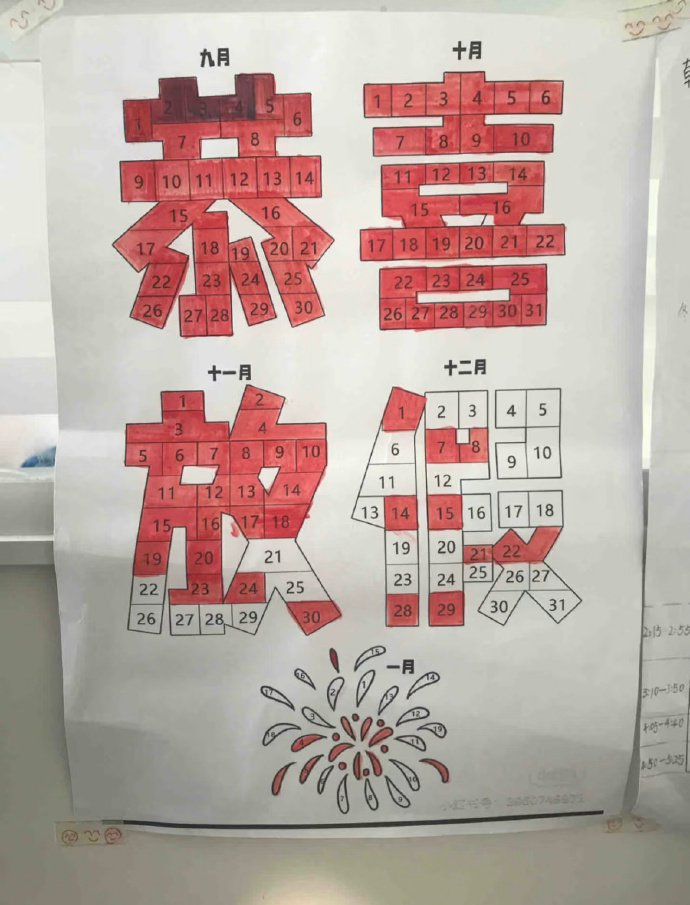 九月
十月
1 2 3 4 5 6
7 8
9 10 11 12 13 14
15 16
17 18 19 20 21
22 23 24 25
26 27 28 29 30
1 2 3 4 5 6
7 8 9 10
11 12 13 14
15 16
17 18 19 20 21 22
22 23 24 25
26 27 28 29 30 31
十一月
十二月
1 2
3 4
5 6 7 8 9 10
11 12 13 14
15 16 17 18
19 20 21
22 23 24 25
26 27 28 29 30
1 2 3 4 5
6 7 8 9 10
11 12
13 14 15 16 17 18
19 20 21 22
23 24 25 26 27
28 29 30 31
一月
15
16 14
17 2 1 13
3 12
18 19
11
10
7 8 9
3:10-3:50